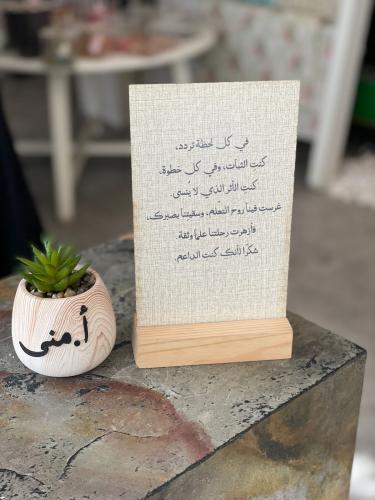 في كل لحظة تردد،
كنتِ الثبات، وفي كل خطوة،
كنتِ الأثر الذي لا يُنسى.
غرستِ فينا روح التعلّم، وسقيتنا بصبرك،
فأزهرت رحلتنا علمًا وثقة
شكرًا لأنكِ كنتِ الداعم.
أ.منى